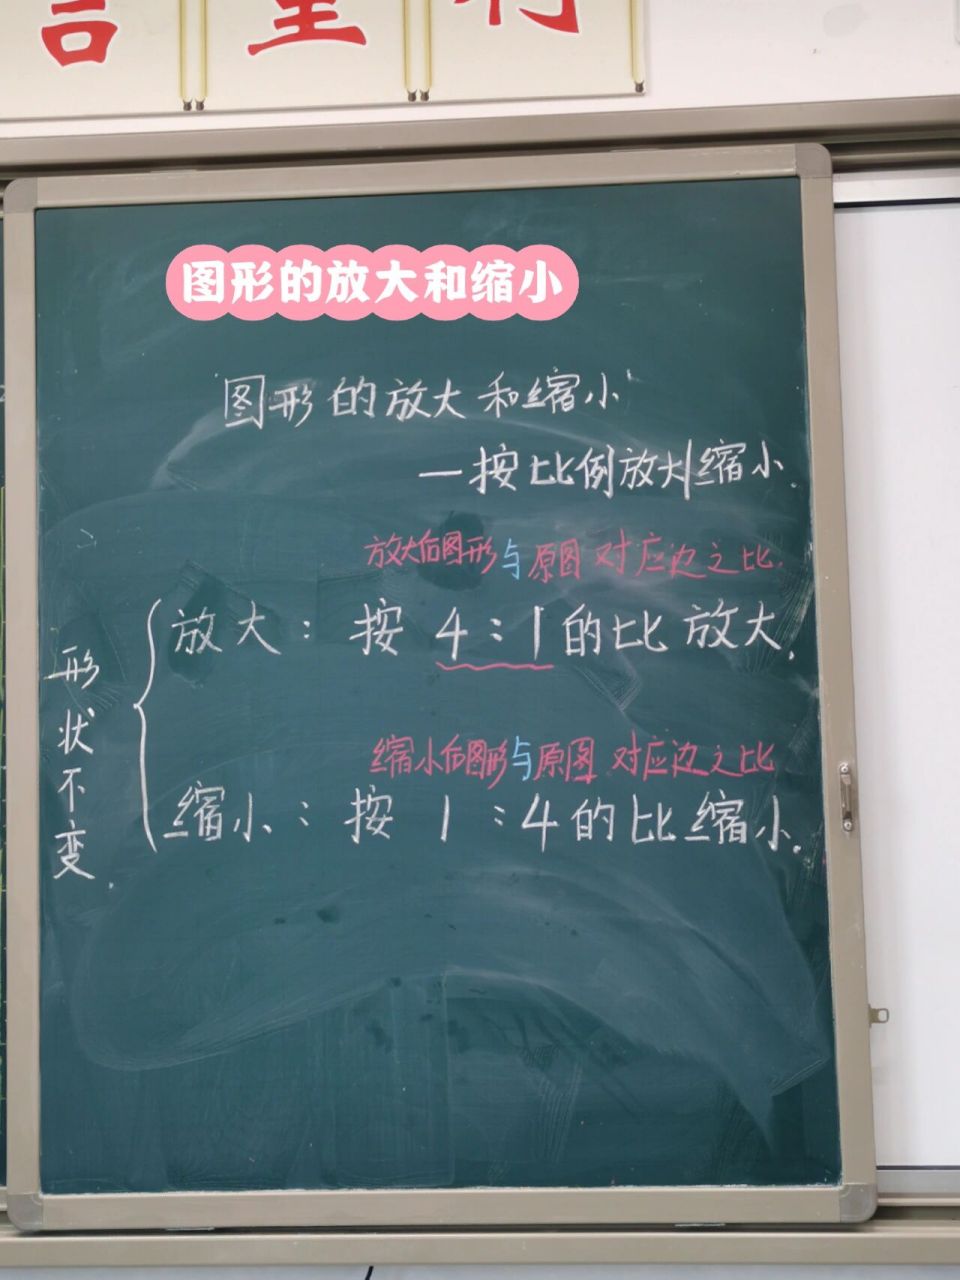 言
图形的放大和缩小
图形的放大和缩小
—按比例放大缩小.
放大后图形与原图对应边之比.
放大：按4:1的比放大.
形状不变.
缩小后图形与原图对应边之比
缩小：按1:4的比缩小.